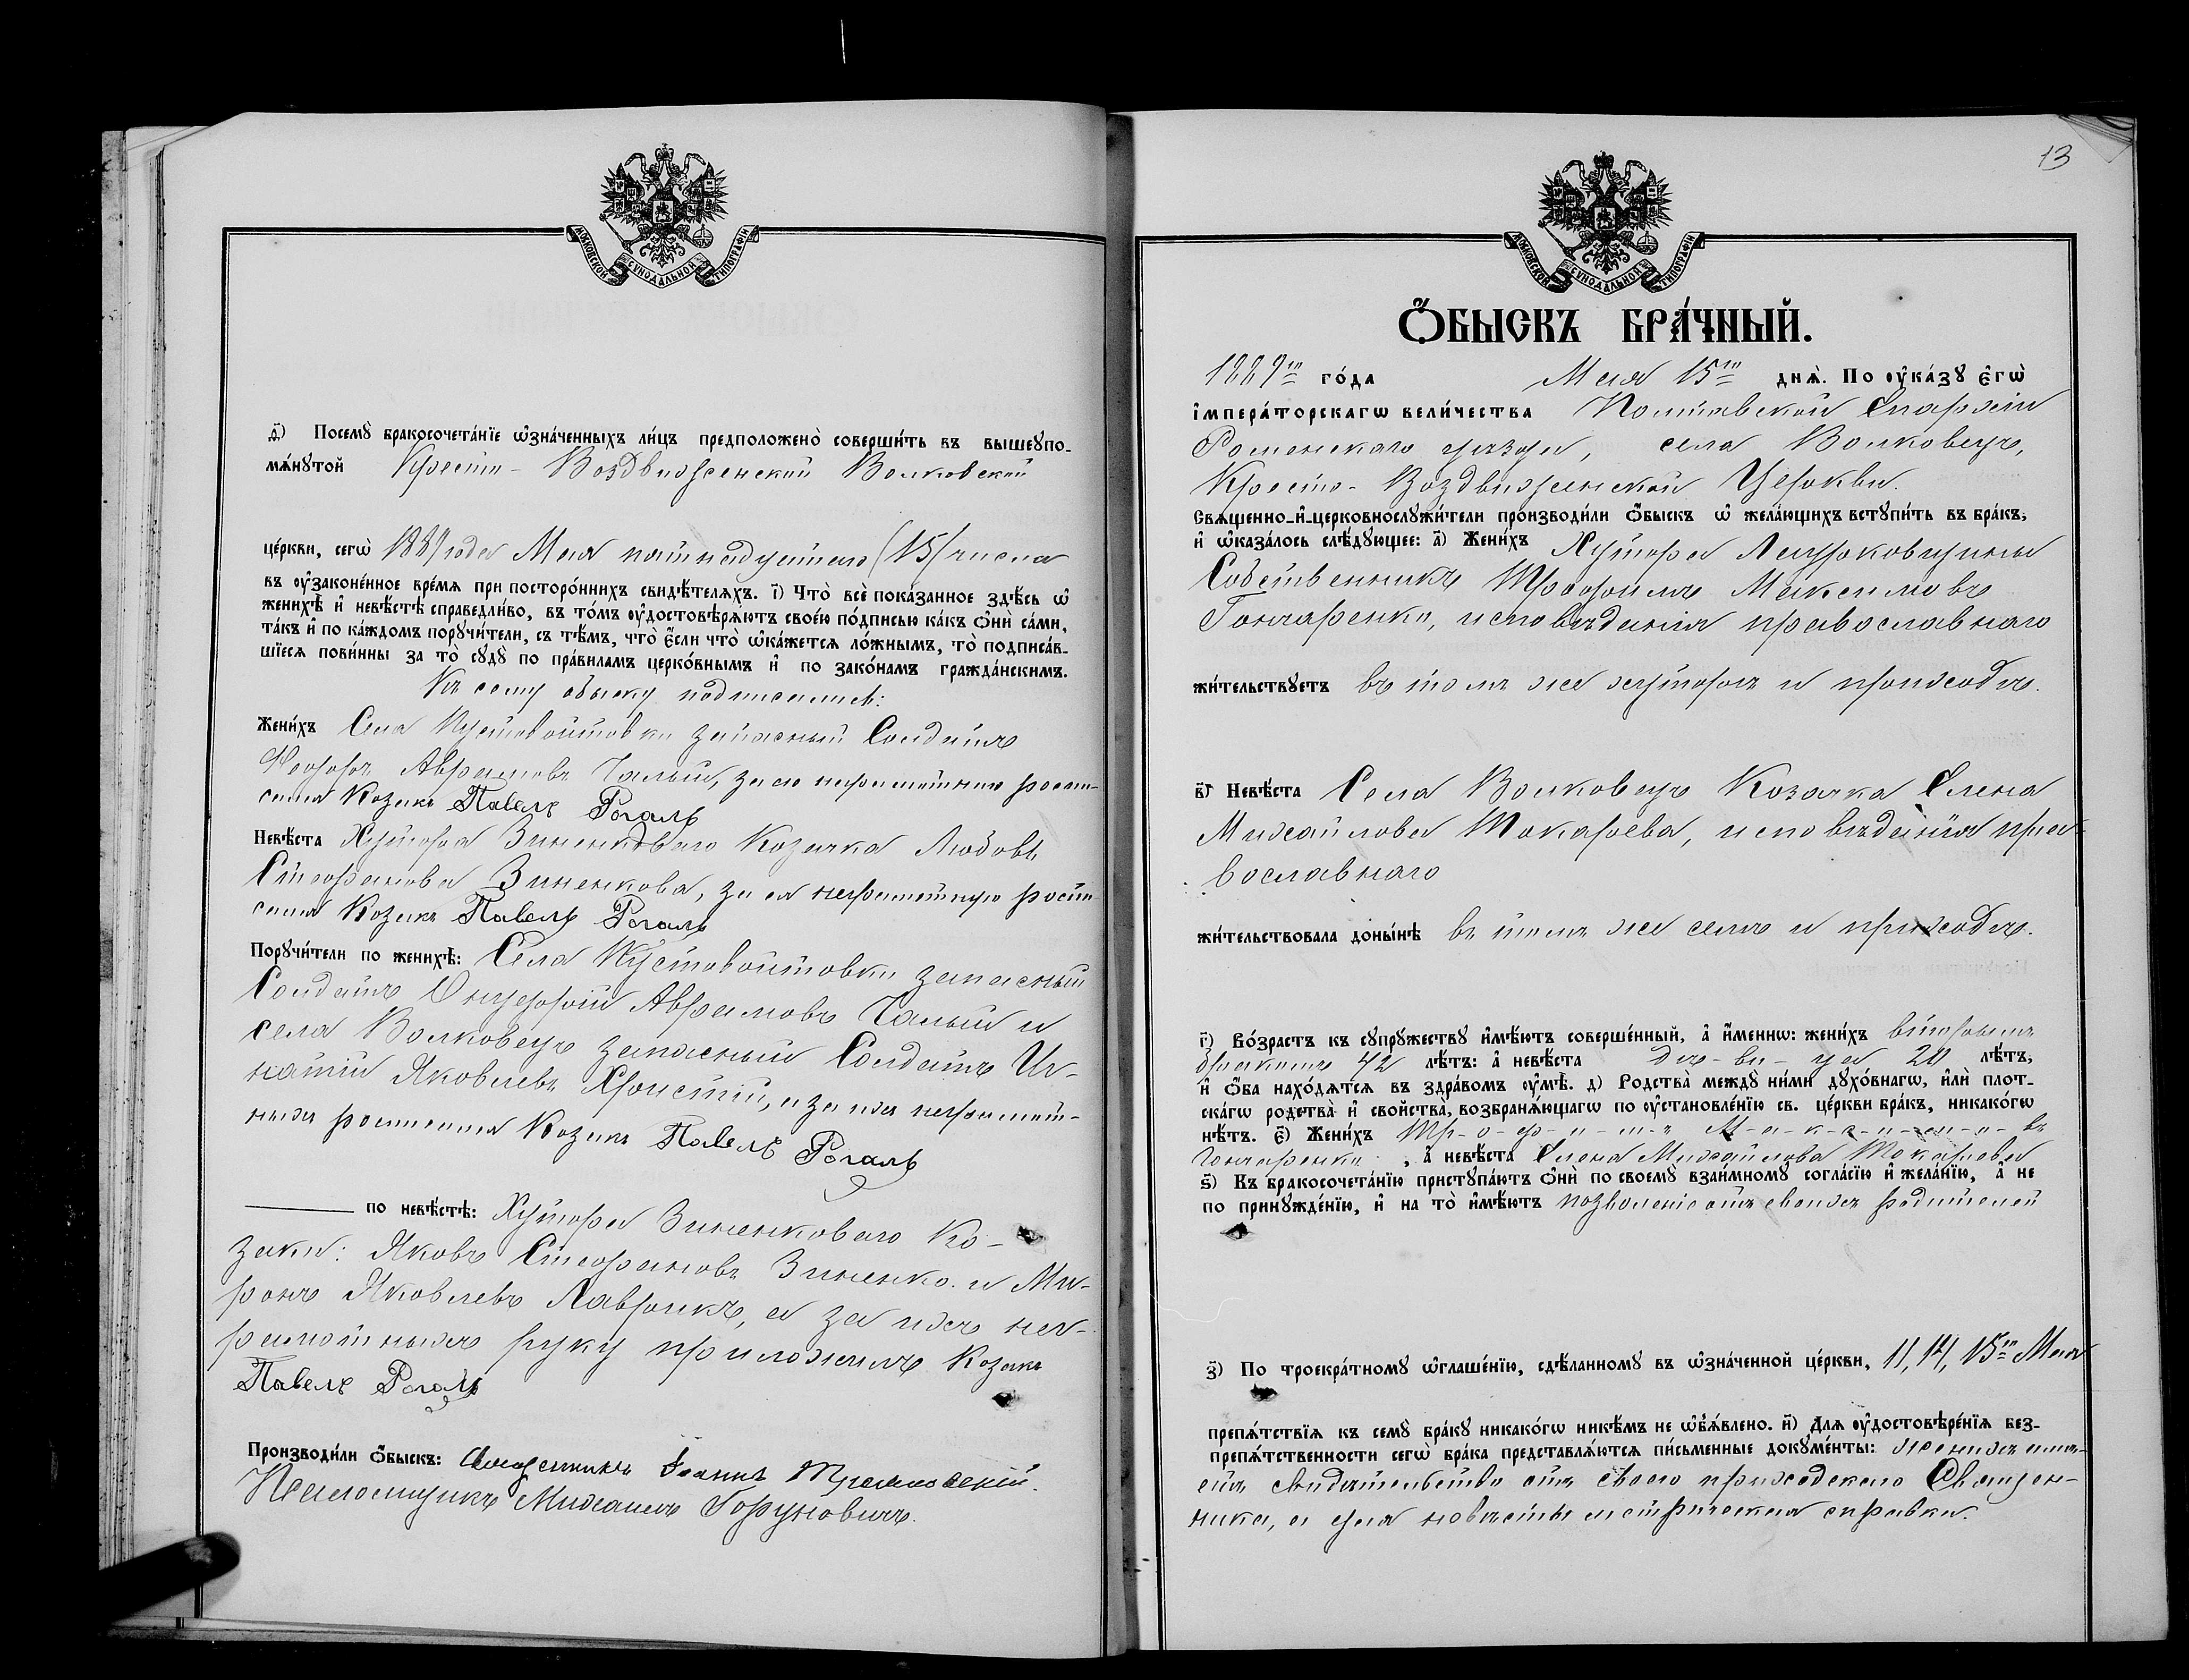 МОСКОВСКОЙ СѴНОДАЛЬНОЙ ТИПОГРАФІИ
д҃) Посемꙋ̀ бракосочета́нїе ѡ҆зна́ченныхъ ли́цъ предположено̀ соверши́ть въ вышеꙋпо-
мѧ́нꙋтой Кресто-Воздвиженской Волковской
це́ркви, сегѡ̀ 1889 года Мая пятнадцатаго (15) числа
въ ᲂу҆зако́не́нное вре́мѧ при посторо́ннихъ свидѣ́телѧхъ. і҃) Что̀ всѐ пока́занное здѣ́сь ѡ҆
женихѣ̀ и҆ невѣ́стѣ справедли́во, въ то́мъ ᲂу҆достовѣрѧ́ютъ свое́ю по́дписью ка́къ ѻ҆нѝ са́ми,
та́къ и҆ по ка́ждомъ порꙋчи́тели, съ тѣ́мъ, что̀ є҆́сли что̀ ѡ҆ка́жетсѧ ло́жнымъ, то̀ подписа́в-
шїесѧ пови́нны за то̀ сꙋдꙋ̀ по пра́виламъ церко́внымъ и҆ по зако́намъ гражда́нскимъ.
Къ сему обыску подписались:
Жени́хъ Села Пустовойтовки запасный Солдатъ
Феодоръ Аврамовъ Галый, за его неграмотного роспи-
сался Козакъ Павелъ Рогаль
Невѣ́ста Хутора Зиненковаго Козачка Любовь
Стефанова Зиненкова, за ея неграмотную роспи-
сался Козакъ Павелъ Рогаль
Порꙋчи́тели по женихѣ̀: Села Пустовойтовки запасный
Солдатъ Онуфрій Аврамовъ Галый и
села Волковецъ запасный Солдатъ Иг-
натій Яковлевъ Хростій, а за ихъ неграмот-
ныхъ росписался Козакъ Павелъ Рогаль
по невѣ́стѣ: Хутора Зиненковаго Ко-
заки: Яковъ Стефановъ Зиненко и Ми-
ронъ Яковлевъ Лаврикъ, а за ихъ нег-
рамотныхъ руку приложилъ Козакъ
Павелъ Рогаль
Производи́ли ѻ҆́быскъ: Священникъ Іоаннъ
Псаломщикъ Михаилъ Горуновичъ.
13
МОСКОВСКОЙ СѴНОДАЛЬНОЙ ТИПОГРАФІИ
Ѻ҆́БЫСКЪ БРА́ЧНЫЙ.
1889го го́да Мая 15го днѧ̀. По ᲂу҆ка́зꙋ є҆гѡ̀
і҆мпера́торскагѡ вели́чества Полтавской Епархіи
Роменскаго уѣзда, села Волковецъ,
Кресто-Воздвиженской Церкви.
Свѧще́нно-и҆-церковнослꙋжи́тели производи́ли ѻ҆́быскъ ѡ҆ жела́ющихъ встꙋпи́ть въ бра́къ,
и҆ ѡ҆каза́лось слѣ́дꙋющее: а҃) Жени́хъ Хутора Лацюковщины
Собственникъ Трофимъ Максимовъ
Гончаренко, исповѣданія православнаго
жи́тельствꙋетъ въ томъ же хуторѣ и приходѣ.
в҃) Невѣ́ста Села Волковецъ Козачка Елена
Михайлова Токарева, исповѣданія пра-
вославнаго
жи́тельствовала доны́нѣ въ томъ же селѣ и приходѣ.
г҃) Во́зрастъ къ сꙋпрꙋ́жествꙋ и҆мѣ́ютъ соверше́нный, а҆ и҆́меннѡ: жени́хъ вторымъ
бракомъ 42 лѣ́тъ: а҆ невѣ́ста дѣ-ви-ца 20 лѣ́тъ,
и҆ ѻ҆́ба нахо́дѧтсѧ въ здра́вомъ ᲂу҆мѣ̀. д҃) Родства̀ междꙋ̀ ни́ми дꙋхо́внагѡ, и҆лѝ плот-
ска́гѡ родства̀ и҆ сво́йства, возбранѧ́ющагѡ по ᲂу҆становле́нїю св. це́ркви бра́къ, никако́гѡ
нѣ́тъ. є҃) Жени́хъ Тр-о-ф-и-м-ъ М-а-к-с-и-м-о-въ
Гончаренко, а҆ невѣ́ста Елена Михайлова Токарева
ѕ҃) Къ бракосочета́нїю пристꙋпа́ютъ ѻ҆нѝ по своемꙋ̀ взаи́мномꙋ согла́сїю и҆ жела́нїю, а҆ не
по принꙋжде́нїю, и҆ на то̀ и҆мѣ́ютъ позволеніе отъ своихъ родителей
з҃) По троекра́тномꙋ ѡ҆глаше́нїю, сдѣ́ланномꙋ въ ѡ҆зна́ченной це́ркви, 11, 14, 15го Мая
препѧ́тствїѧ къ семꙋ̀ бра́кꙋ никако́гѡ никѣ́мъ не ѡ҆б̾ѧ́влено. и҃) Длѧ ᲂу҆достовѣре́нїѧ без-
препѧ́тственности сегѡ̀ бра́ка представлѧ́ютсѧ пи́сьменные докꙋме́нты: женихъ имѣ-
етъ свидѣтельство отъ своего приходскаго Священ-
ника, а для невѣсты метрическая справка.